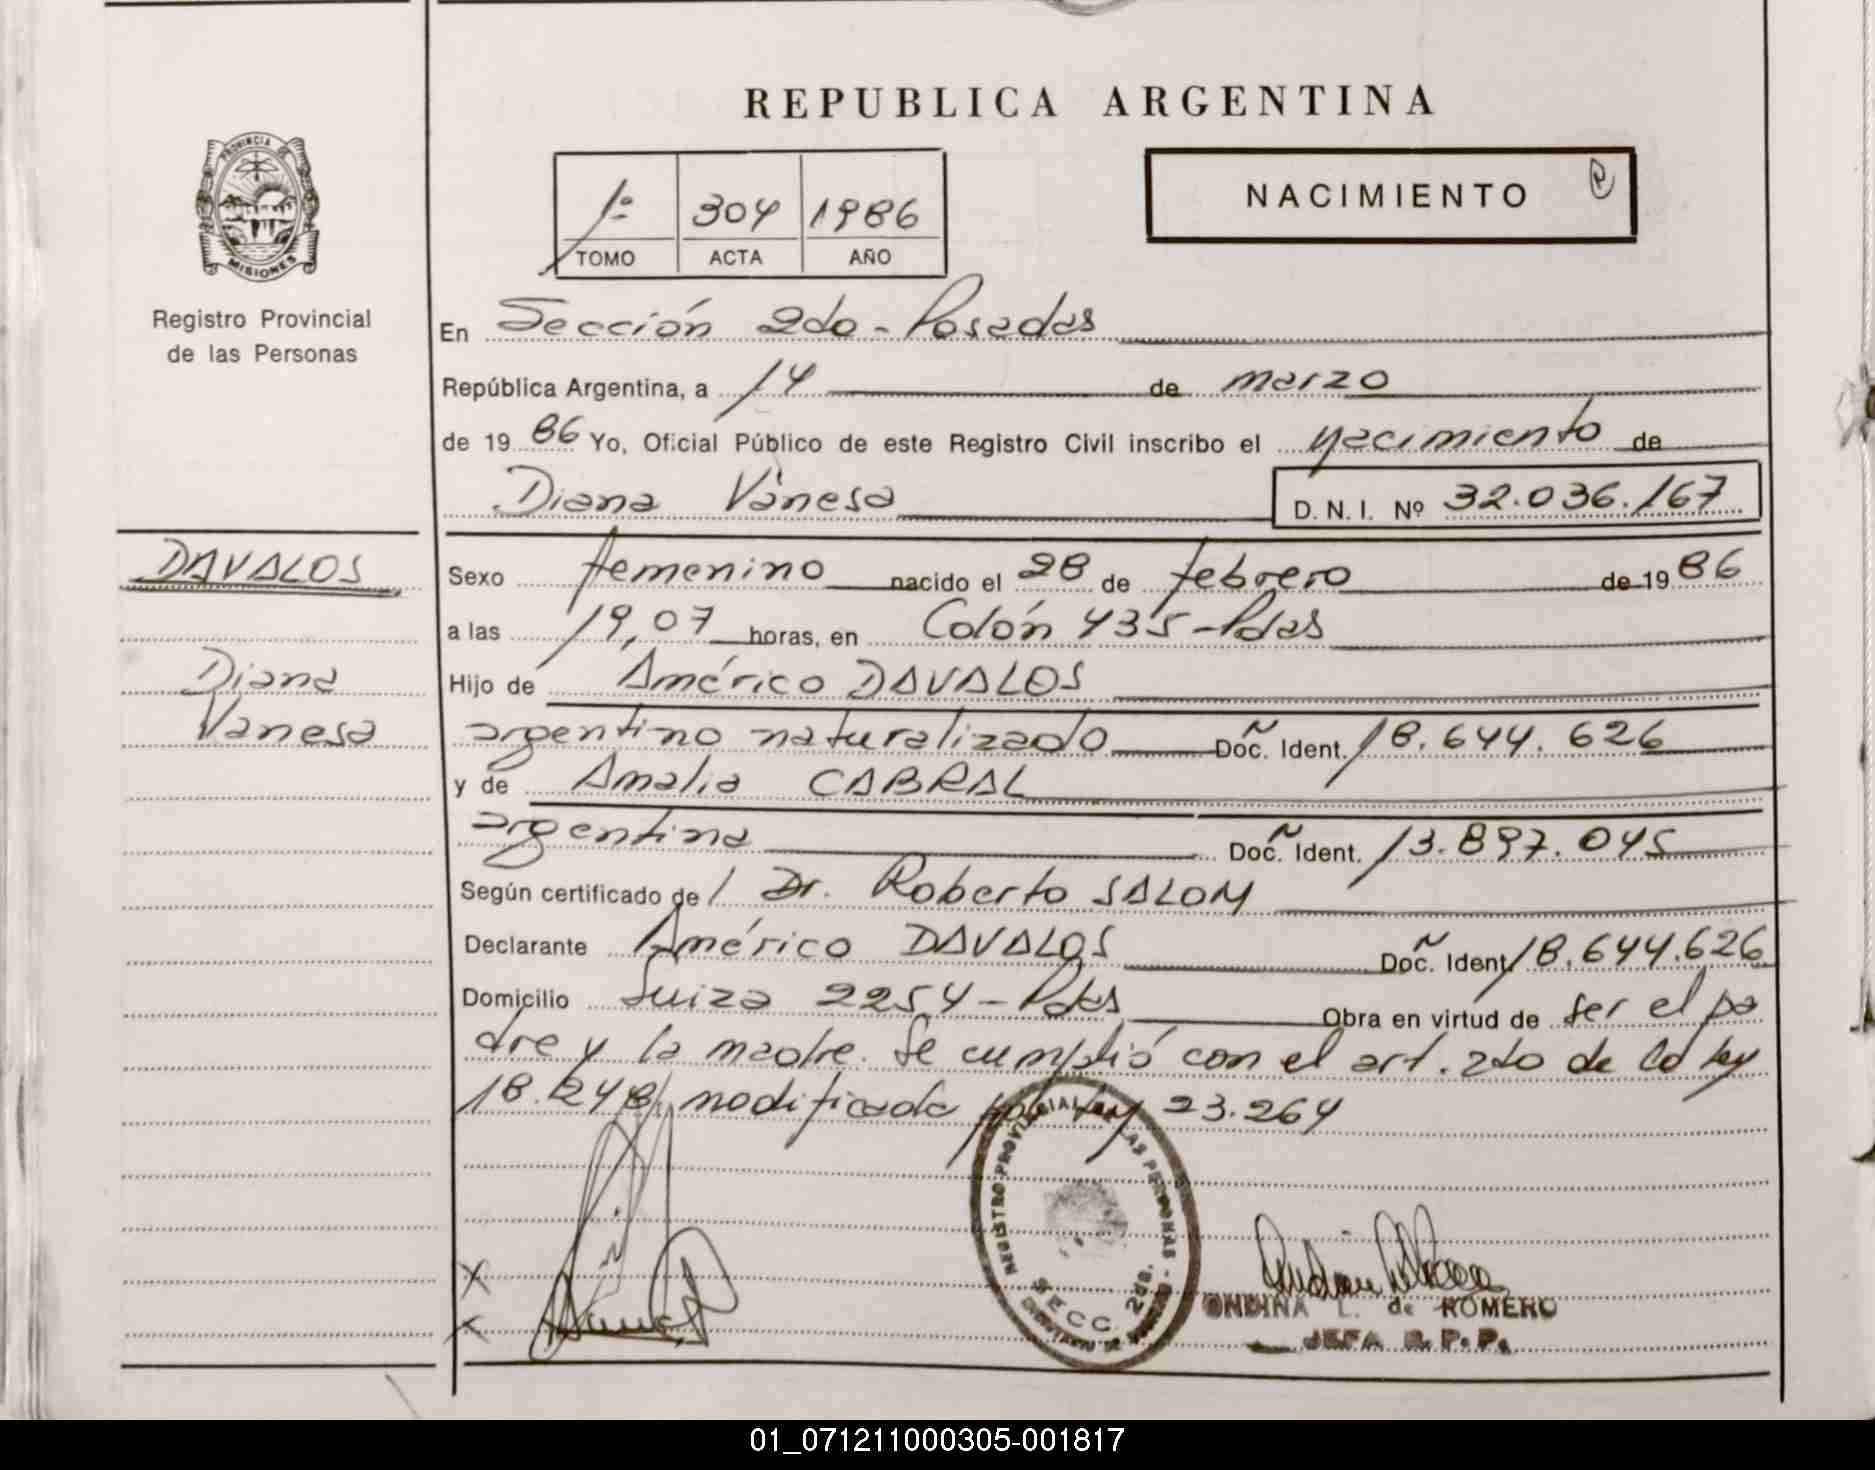 REPUBLICA ARGENTINA
PROVINCIA DE
MISIONES
Registro Provincial
de las Personas
1º 304 1986
TOMO ACTA AÑO
NACIMIENTO
En Sección 2do - Posadas
República Argentina, a 14 de marzo
de 19 86 Yo, Oficial Público de este Registro Civil inscribo el nacimiento de
Diana Vanesa D. N. I. Nº 32.036.167
DAVALOS
Diana
Vanesa
Sexo femenino nacido el 28 de febrero de 19 86
a las 19,07 horas, en Colón 435 - Pdas
Hijo de Américo DAVALOS
argentino naturalizado Doc. Ident. 18.644.626
y de Amalia CABRAL
argentina Doc. Ident. 13.897.045
Según certificado de Dr. Roberto SALOM
Declarante Américo DAVALOS Doc. Ident. 18.644.626
Domicilio Suiza 2254 - Pdas Obra en virtud de ser el pa
dre y la madre. Se cumplió con el art. 2do de la ley
18.248, modificada por ley 23.264
REGISTRO PROVINCIAL DE LAS PERSONAS
SECC. 2da.
ONDINA L. de ROMERO
JEFA R. P. P.
01_071211000305-001817